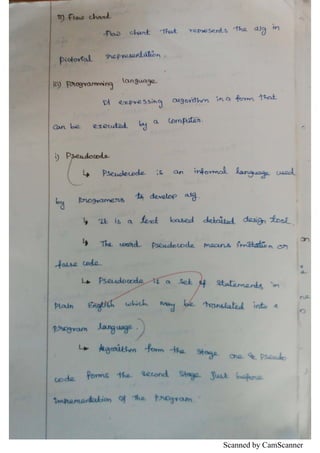 ii) Flow chart
Flow chart that represents the alg in
pictorial representation.
iii) Programming language
It expressing algorithm in a form that
can be executed by a computer.
i) Pseudocode
↳ Pseudocode is an informal language used
by programers to develop alg.
↳ It is a text based detailed design tool
↳ The word pseudocode means imitation or
false code.
↳ Pseudocode is a set of statements in
plain English which may be translated into a
program language.
↳ Algorithm form the stage one & pseudo
code forms the second stage just before
implementation of the program.
Scanned by CamScanner